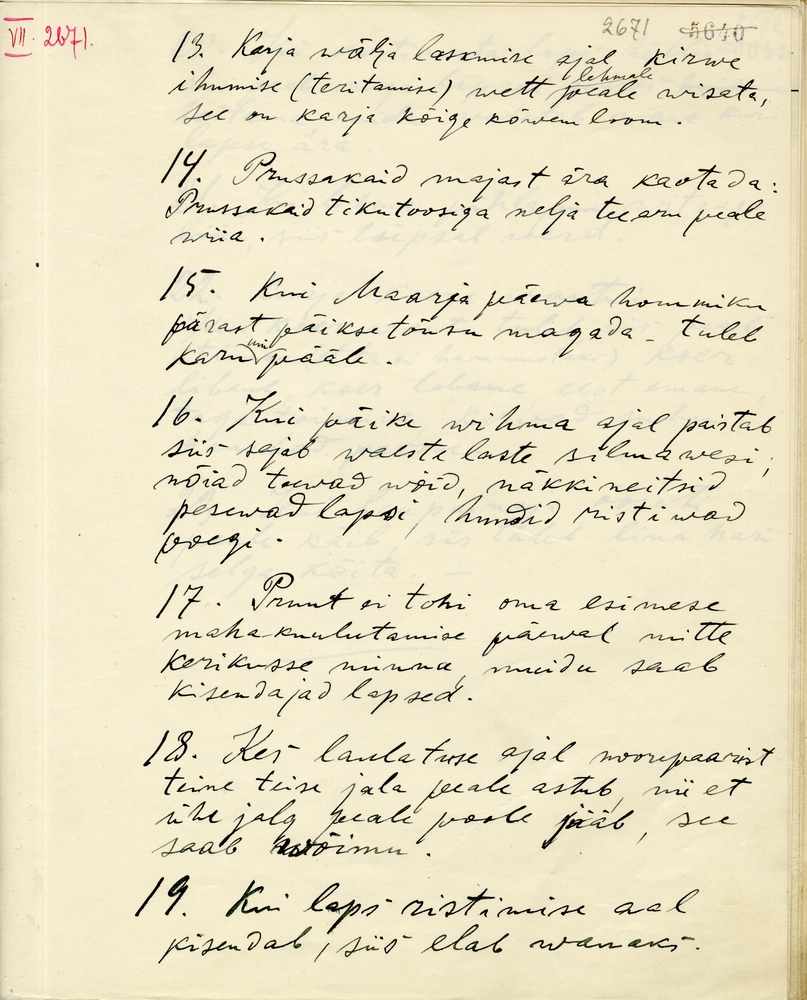 2671 5640
VII. 2671.
13. Karja wälja laskmise ajal kirwe
lehmale
ihumise (teritamise) wett peale wisata,
see on karja kõige kõwem loom.
14. Prussakaid majast ära kaotada:
Prussakaid tikutoosiga nelja teearu peale
wiia.
15. Kui Maarja päewa hommiku
pärast päiksetõusu magada - tuleb
karu uni pääle.
16. Kui päike wihma ajal paistab
siis sajab waeste laste silmawesi;
nõiad toowad wõid, näkkineitsid
pesewad lapsi, hundid ristiwad
poegi.
17. Pruut ei tohi oma esimese
maha-kuulutamise päewal mitte
kerikusse minna, muidu saab
kisendajad lapsed.
18. Kes laulatuse ajal noorepaarist
teine teise jala peale astub, nii et
ühe jalg peale poole jääb, see
saab wõimu.
19. Kui laps ristimise aal
kisendab, siis elab wanaks.